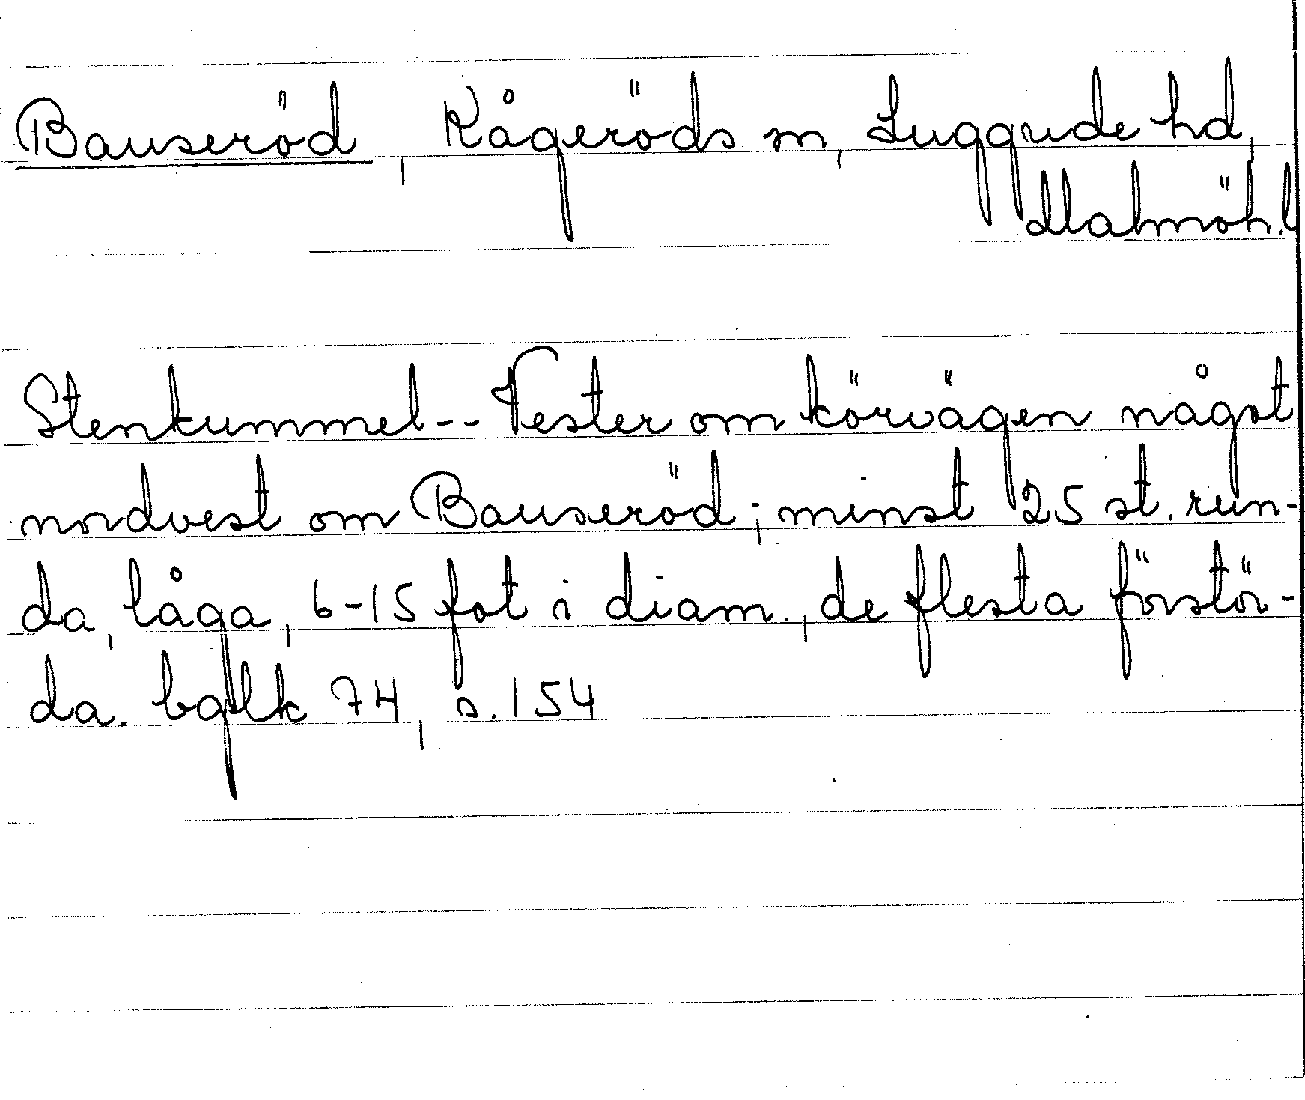 Bauseröd, Kågeröds sn, Luggude hd,
Malmöh. l
Stenkummel-- Vester om körvägen något
nordvest om Bauseröd; minst 25 st. run-
da, låga, 6-15 fot i diam., de flesta förstör-
da. bqlk 74, s. 154